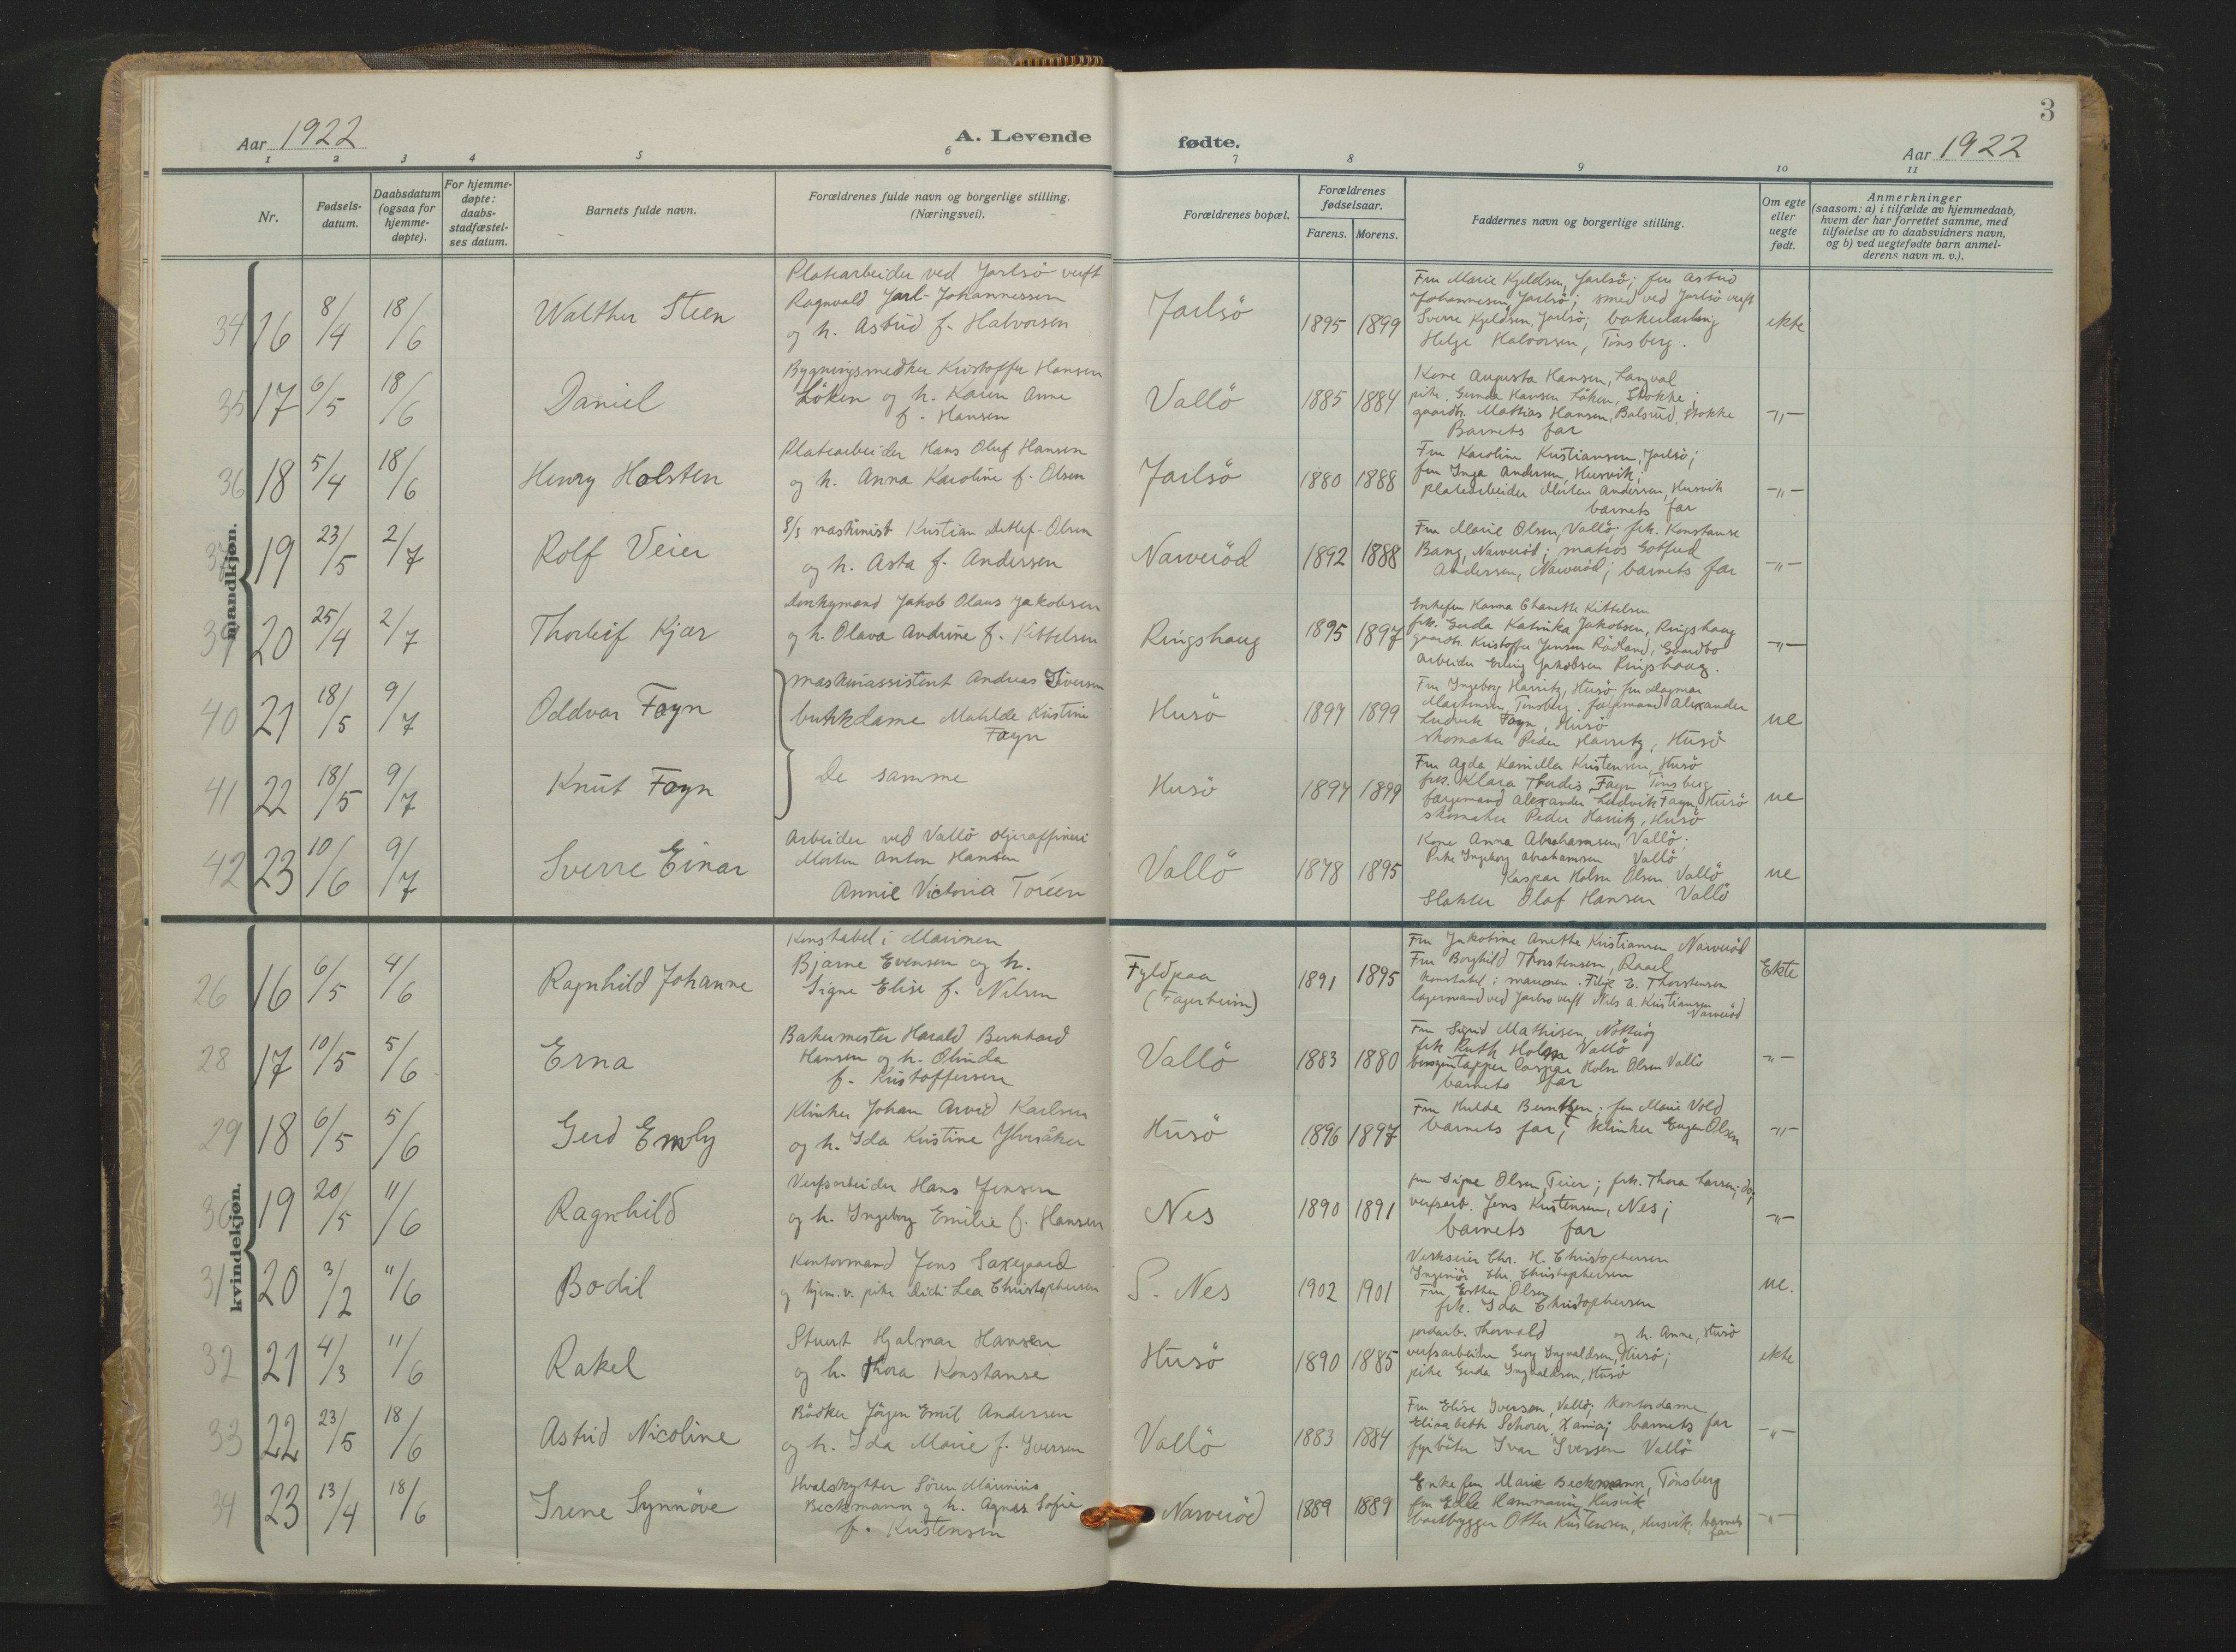 3
Aar 1922
A. Levende
fødte.
Aar 1922
1 2 3 4 5 6 7 8 9 10 11
Nr.
Fødsels-
datum.
Daabsdatum
(ogsaa for
hjemme-
døpte).
For hjemme-
døpte:
daabs-
stadfæstel-
ses datum.
Barnets fulde navn.
Forældrenes fulde navn og borgerlige stilling.
(Næringsvei).
Forældrenes bopæl.
Forældrenes
fødselsaar.
Farens. Morens.
Faddernes navn og borgerlige stilling.
Om egte
eller
uegte
født.
Anmerkninger
(saasom: a) i tilfælde av hjemmedaab,
hvem der har forrettet samme, med
tilføielse av to daabsvidners navn,
og b) ved uegtefødte barn anmel-
derens navn m. v.).
mandkjøn.
34 16 8/4 18/6 Walther Steen
Platearbeider ved Jarlsö verft
Ragnvald Jarl-Johannessen
og h. Astrid f. Halvorsen
Jarlsö 1895 1899
Fru Marie Kjeldsen, Jarlsö; fru Astrid
Johannesen, Jarlsö; smed ved Jarlsö verft
Sverre Kjeldsen, Jarlsö; bakerlærling
Helge Halvorsen, Tönsberg.
ekte
35 17 6/5 18/6 Daniel
Bygningssnedker Kristoffer Hansen
Löken og h. Karen Anna
f. Hansen
Vallö 1885 1884
Kone Augusta Hansen,
pike Gunda Hansen Löken, Stokke;
gaardb. Mathias Hansen, Balsrud, Stokke
Barnets far
-"-
36 18 5/4 18/6 Henry Holsten
Platearbeider Hans Oluf Hansen
og h. Anna Karoline f. Olsen
Jarlsö 1880 1888
Fru Karoline Kristiansen, Jarlsö;
fru Inga Andersen, Husvik;
platearbeider Andersen, Husvik
barnets far
-"-
37 19 23/5 2/7 Rolf Veier
S/S maskinist Kristian Detlef-Olsen
og h. Asta f. Andersen
Narveröd 1892 1888
Fru Marie Olsen, Vallö; frk. Konstanse
Bang, Narveröd; matros Gotfred
Andersen, Narveröd; barnets far
-"-
39 20 25/4 2/7 Thorleif Kjær
Donkymand Jakob Olaus Jakobsen
og h. Olava Andrine f. Kittelsen
Ringshaug 1895 1897
Enkefru Hanna Chanette Kittelsen
frk. Gerda Katinka Jakobsen, Ringshaug
gaardb. Kristoffer Jensen Rödland,
Arbeider Erling Jakobsen Ringshaug.
-"-
40 21 18/5 9/7 Oddvar Fayn
Maskinassistent Andreas Siversen
butikdame Matilde Kristine
Fayn
Husö 1897 1899
Fru Ingeborg Harritz, Husö; fru Dagmar
Martinsen, Tönsberg; færgemand Alexander
Ludvik Fayn, Husö
skomaker Peder Harritz, Husö
ue
41 22 18/5 9/7 Knut Fayn
De samme
Husö 1897 1899
Fru Agda Kamilla Kristensen, Husö
frk. Klara Thordis Fayn Tönsberg
færgemand Alexander Ludvik Fayn, Husö
skomaker Peder Harritz, Husö
ue
42 23 10/6 9/7 Sverre Einar
Arbeider ved Vallö oljeraffineri
Morten Anton Hansen
Annie Victoria Toréen
Vallö 1878 1895
Kone Anna Abrahamsen, Vallö;
Pike Ingeborg Abrahamsen Vallö
Kaspar Holm Olsen Vallö
Slakter Olaf Hansen Vallö
ue
kvindekjøn.
26 16 6/5 4/6 Ragnhild Johanne
Konstabel i Marinen
Bjarne Evensen og h.
Signe Elise f. Nilsen
Fyldpaa
(Fagerheim)
1891 1895
Fru Jakobine Anette Kristiansen Narveröd
Fru Borghild Thorstensen, Raael
konstabel i marinen Filip E. Thorstensen
lagermand ved Jarlsö verft Nils A. Kristiansen
Narveröd
Ekte
28 17 10/5 5/6 Erna
Bakermester Harald Bernhard
Hansen og h. Olinda
f. Kristoffersen
Vallö 1883 1880
Fru Sigrid Mathisen, Nötteröy
frk Ruth Holm Vallö
benzintapper Caspar Holm Olsen Vallö
barnets far
-"-
29 18 6/5 5/6 Gerd Emoly
Klinker Johan Arvid Karlsen
og h. Ida Kristine Ylvisåker
Husö 1896 1897
Fru Hulda Berntsen; fru Marie Vold
barnets far; klinker Eugen Olsen
-"-
30 19 20/5 11/6 Ragnhild
Verfsarbeider Hans Jensen
og h. Ingeborg Emilie f. Hansen
Nes 1890 1891
fru Signe Olsen, Teier; frk. Thora Larsen;
verfsarb. Jens Kristensen, Nes;
barnets far
-"-
31 20 3/2 11/6 Bodil
Kontormand Jens Saxegaard
og hjem.v. pike Didi Lea Christophersen
S. Nes 1902 1901
Verkseier Chr. H. Christophersen
Ingeniör Chr. Christophersen
Fru Esther Olsen
frk. Ida Christophersen
ue.
32 21 4/3 11/6 Rakel
Stuert Hjalmar Hansen
og h. Thora Konstanse
Husö 1890 1885
jordarb. Thorvald og h. Anne, Husö
verfsarbeider Georg Ingvaldsen, Husö;
pike Gerda Ingvaldsen, Husö
ekte
33 22 23/5 18/6 Astrid Nicoline
Bödker Jörgen Emil Andersen
og h. Ida Marie f. Iversen
Vallö 1883 1884
Fru Elise Iversen, Vallö; kontordame
Elisabeth Schorer, Xania; barnets far
fyrböter Ivar Iversen Vallö
-"-
34 23 13/4 18/6 Irene Synnöve
Hvalskytter Sören Marinius
Beckmann og h. Agnes Sofie
f. Kristensen
Narveröd 1889 1889
Enkefru Marie Beckmann, Tönsberg
fru Edle Hammarin, Husvik
baatbygger Otter Kristensen, Husvik, barnets
far
-"-